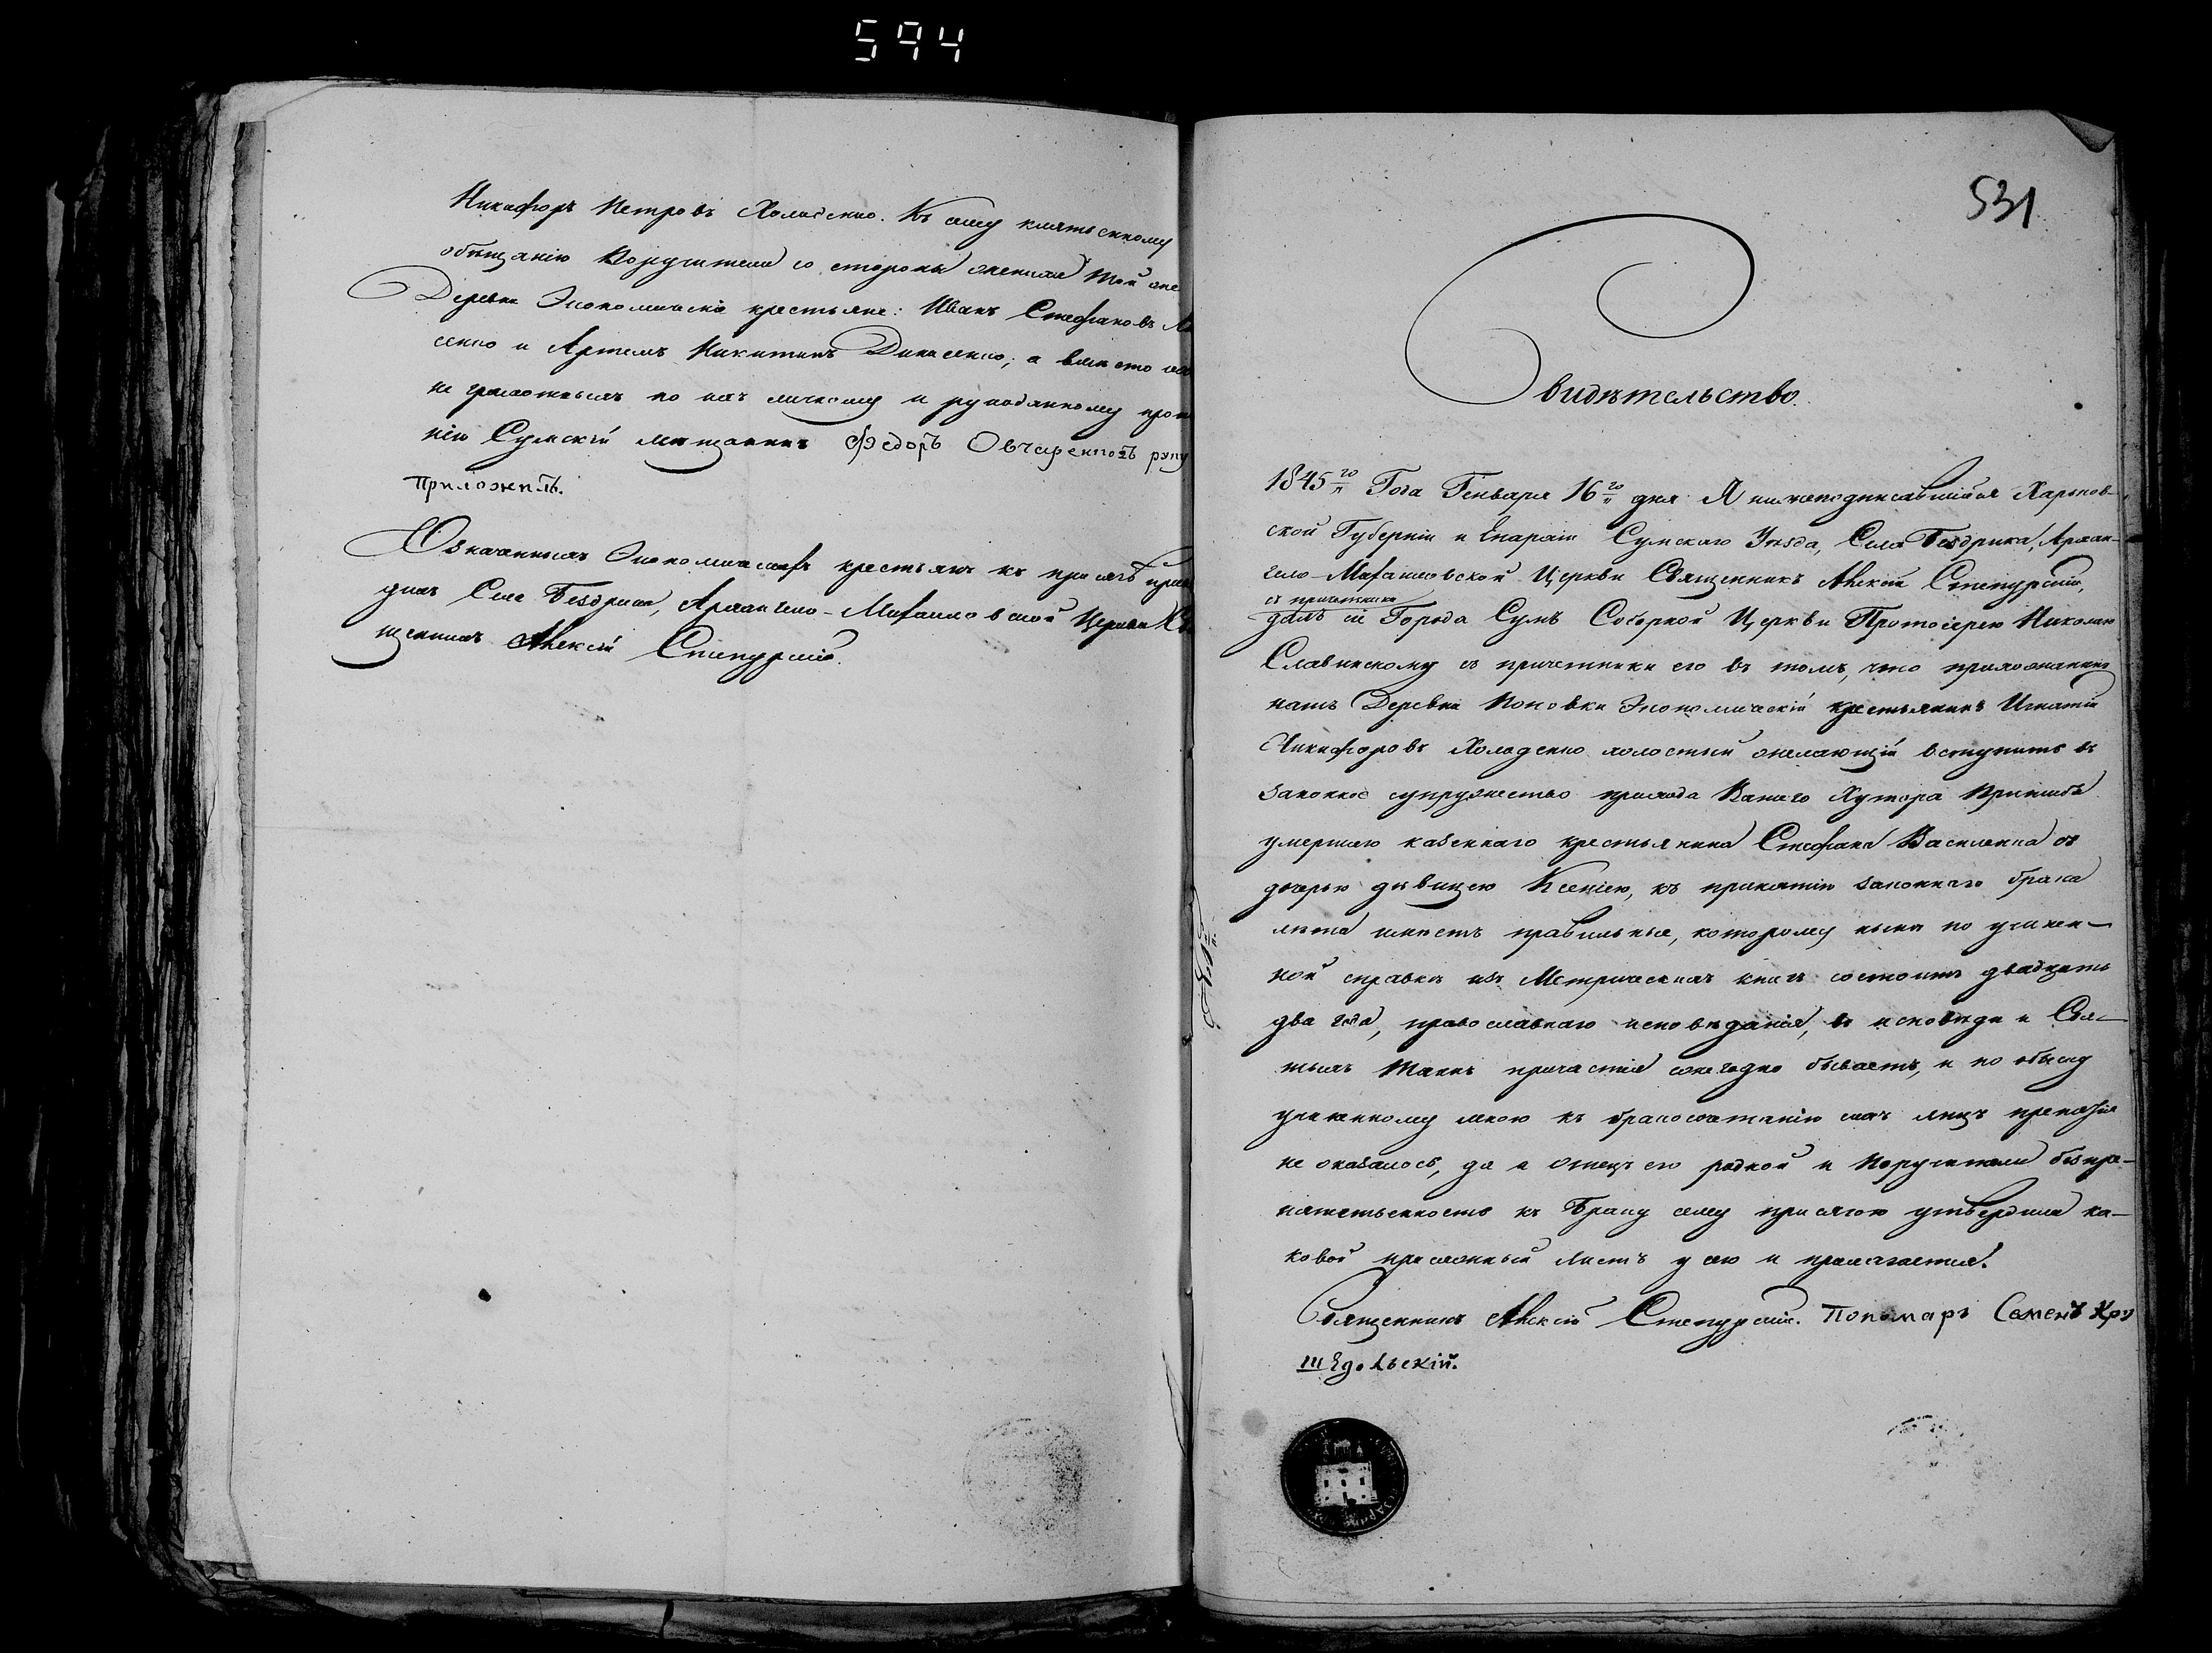 594
Никифоръ Петровъ Холоденко. Къ сему клятвенному
обѣщанію Поручители со стороны жениха той же
Деревни Экономическіе крестьяне: Иванъ Стефановъ
сенко и Артемъ Никитинъ Денисенко; а вмѣсто
не грамотныхъ по ихъ личному и рукоданному проше
нію Сумскій мѣщанинъ Федоръ Овчаренковъ руку
приложилъ.
Означенныхъ Экономическихъ крестьянъ къ присягѣ приво
дилъ Села Бездрика, Архангело-Михаиловской Церкви Свя
щенникъ Алексій Степурскій.
531
Свидѣтельство.
1845го Года Генваря 16го дня Я нижеподписавшійся Харьков-
ской Губерніи и Епархіи Сумскаго Уѣзда, Села Бездрика, Архан-
гело-Михаиловской Церкви Священникъ Алексій Степурскій,
съ причетники
далъ сіе Города Сумъ Соборной Церкви Протоіерею Николаю
Славинскому съ причетники его въ томъ, что прихожанинъ
нашъ Деревни Поповки Экономическій крестьянинъ Игнатій
Никифоровъ Холоденко холостый желающій вступить въ
законное супружество прихода Вашего Хутора
умершаго казеннаго крестьянина Стефана Василенка съ
дочерью дѣвицею Ксеніею, къ принятію законнаго брака
лѣта имѣетъ правильные, которому нынѣ по учинен-
ной справкѣ изъ Метрическихъ книгъ состоитъ двадцать
два года, православнаго исповѣданія, въ исповѣди и Свя-
тыхъ Таинъ причастія ежегодно бываетъ, и по обыску
учиненному мною къ бракосочетанію сихъ лицъ препятія
не оказалось, да и отецъ его родной и Поручители безпре-
пятственность къ Браку сему присягою утвердили ка-
ковой присяжный листъ у сею и прилагается.
Священникъ Алексій Степурскій. Пономарь Семенъ Кру
шедольскій.